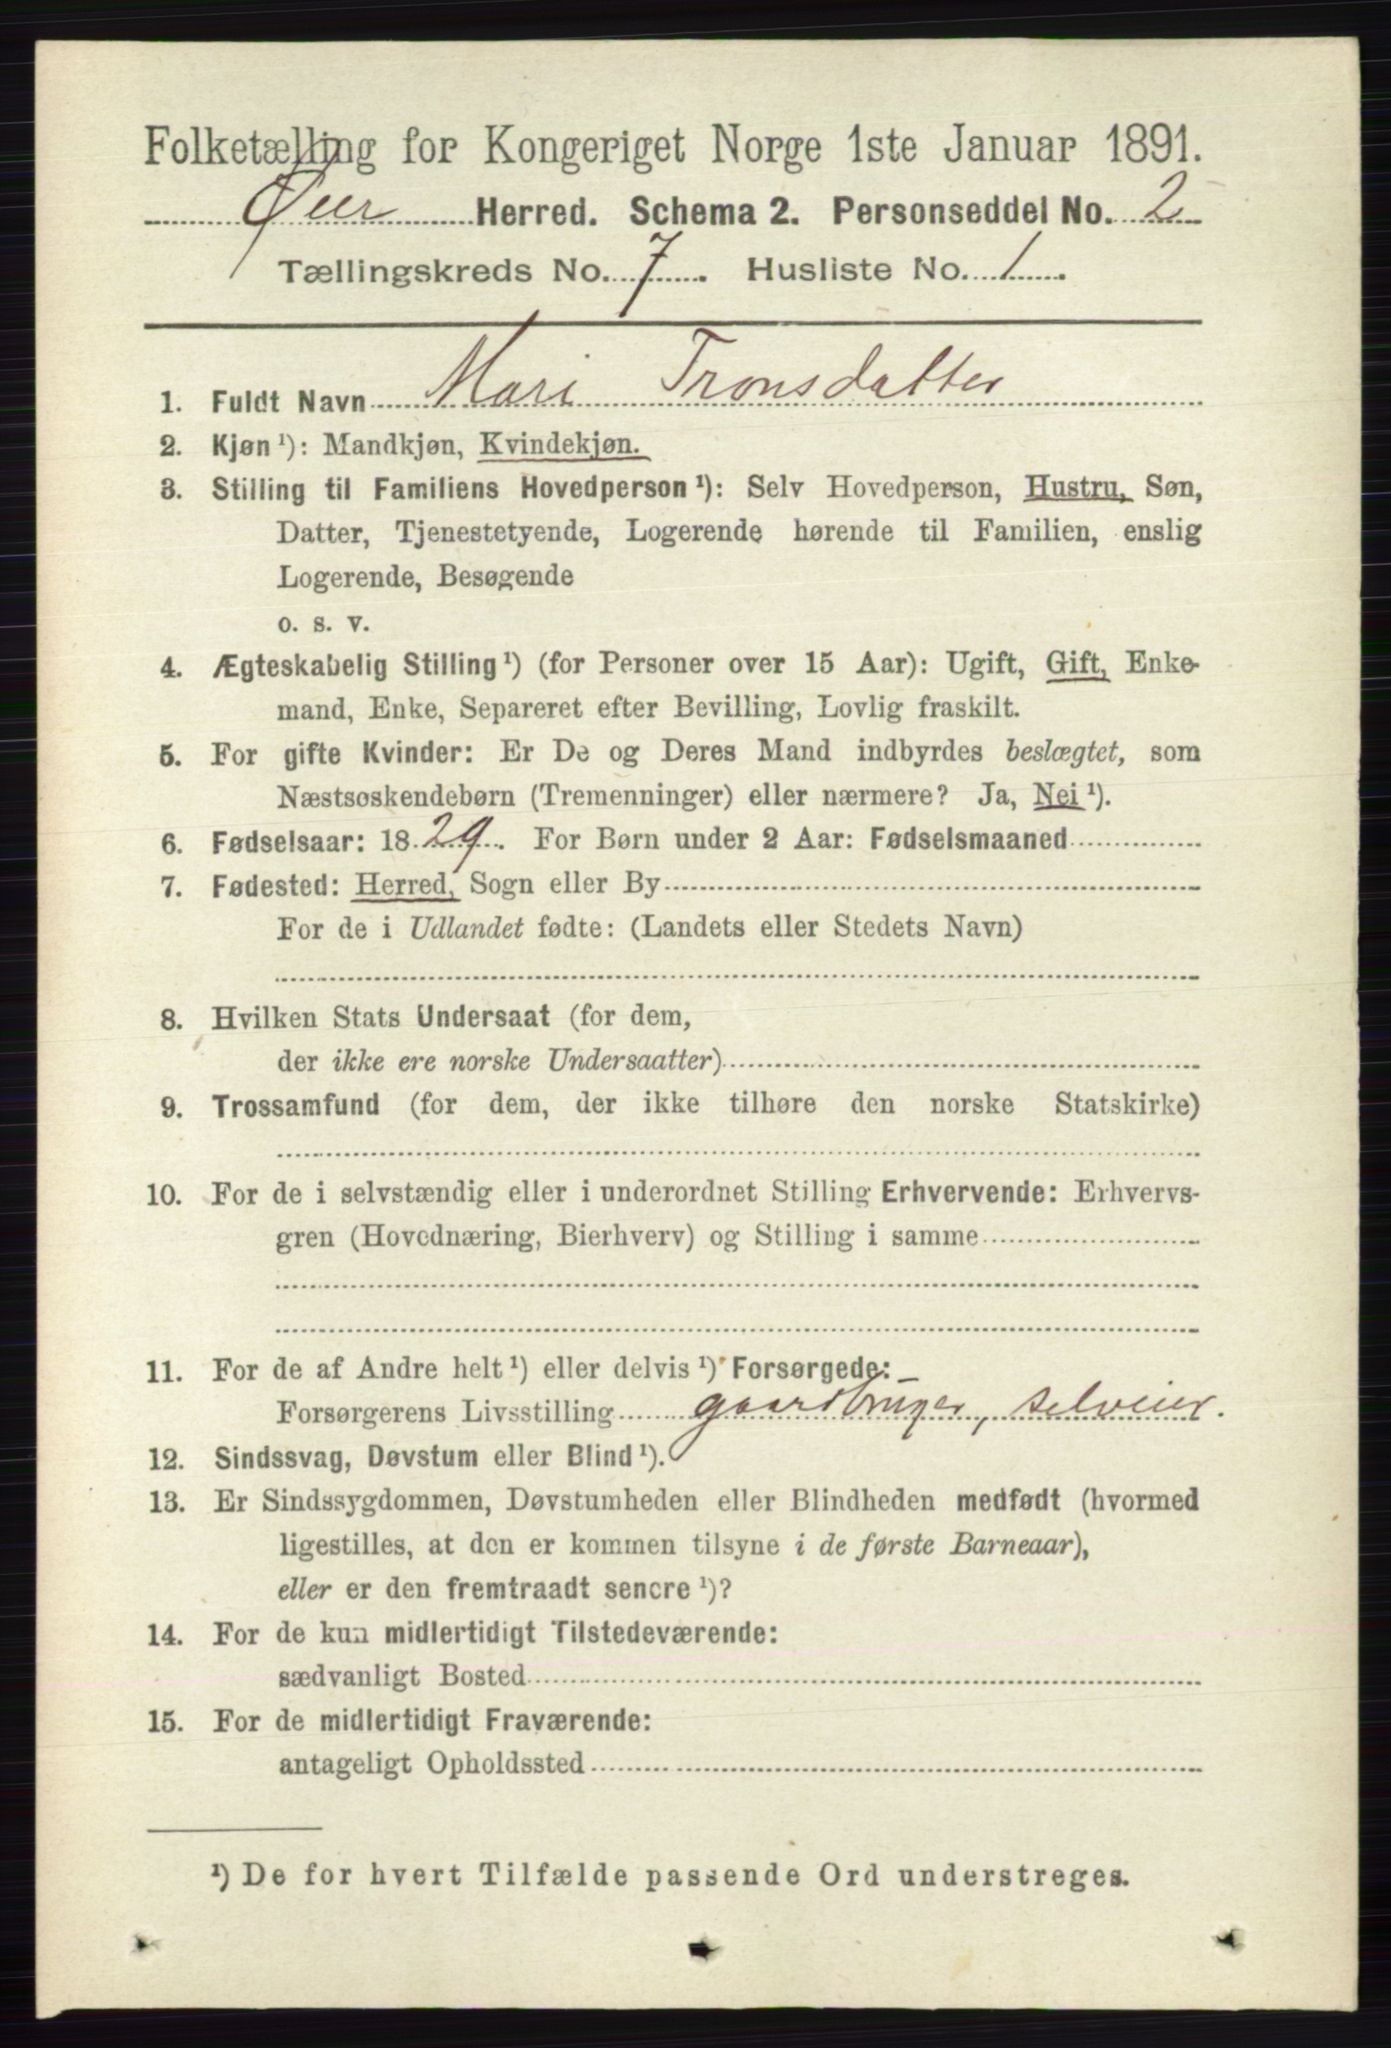 Folketælling for Kongeriget Norge 1ste Januar 1891.
Øier Herred. Schema 2. Personseddel No. 2
Tællingskreds No. 7. Husliste No. 1.
1. Fuldt Navn Mari Tronsdatter
2. Kjøn ¹): Mandkjøn, Kvindekjøn.
3. Stilling til Familiens Hovedperson ¹): Selv Hovedperson, Hustru, Søn,
Datter, Tjenestetyende, Logerende hørende til Familien, enslig
Logerende, Besøgende
o. s. v.
4. Ægteskabelig Stilling ¹) (for Personer over 15 Aar): Ugift, Gift, Enke-
mand, Enke, Separeret efter Bevilling, Lovlig fraskilt.
5. For gifte Kvinder: Er De og Deres Mand indbyrdes beslægtet, som
Næstsøskendebørn (Tremenninger) eller nærmere? Ja, Nei ¹).
6. Fødselsaar: 1829. For Børn under 2 Aar: Fødselsmaaned
7. Fødested: Herred, Sogn eller By
For de i Udlandet fødte: (Landets eller Stedets Navn)
8. Hvilken Stats Undersaat (for dem,
der ikke ere norske Undersaatter)
9. Trossamfund (for dem, der ikke tilhøre den norske Statskirke)
10. For de i selvstændig eller i underordnet Stilling Erhvervende: Erhvervs-
gren (Hovednæring, Bierhverv) og Stilling i samme
11. For de af Andre helt ¹) eller delvis ¹) Forsørgede:
Forsørgerens Livsstilling gaardbruger, selveier.
12. Sindssvag, Døvstum eller Blind ¹).
13. Er Sindssygdommen, Døvstumheden eller Blindheden medfødt (hvormed
ligestilles, at den er kommen tilsyne i de første Barneaar),
eller er den fremtraadt senere ¹)?
14. For de kun midlertidigt Tilstedeværende:
sædvanligt Bosted
15. For de midlertidigt Fraværende:
antageligt Opholdssted
¹) De for hvert Tilfælde passende Ord understreges.